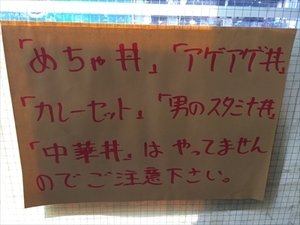 「めちゃ丼」「アゲアゲ丼」
「カレーセット」「男のスタミナ丼」
「中華丼」は やってません
のでご注意下さい。